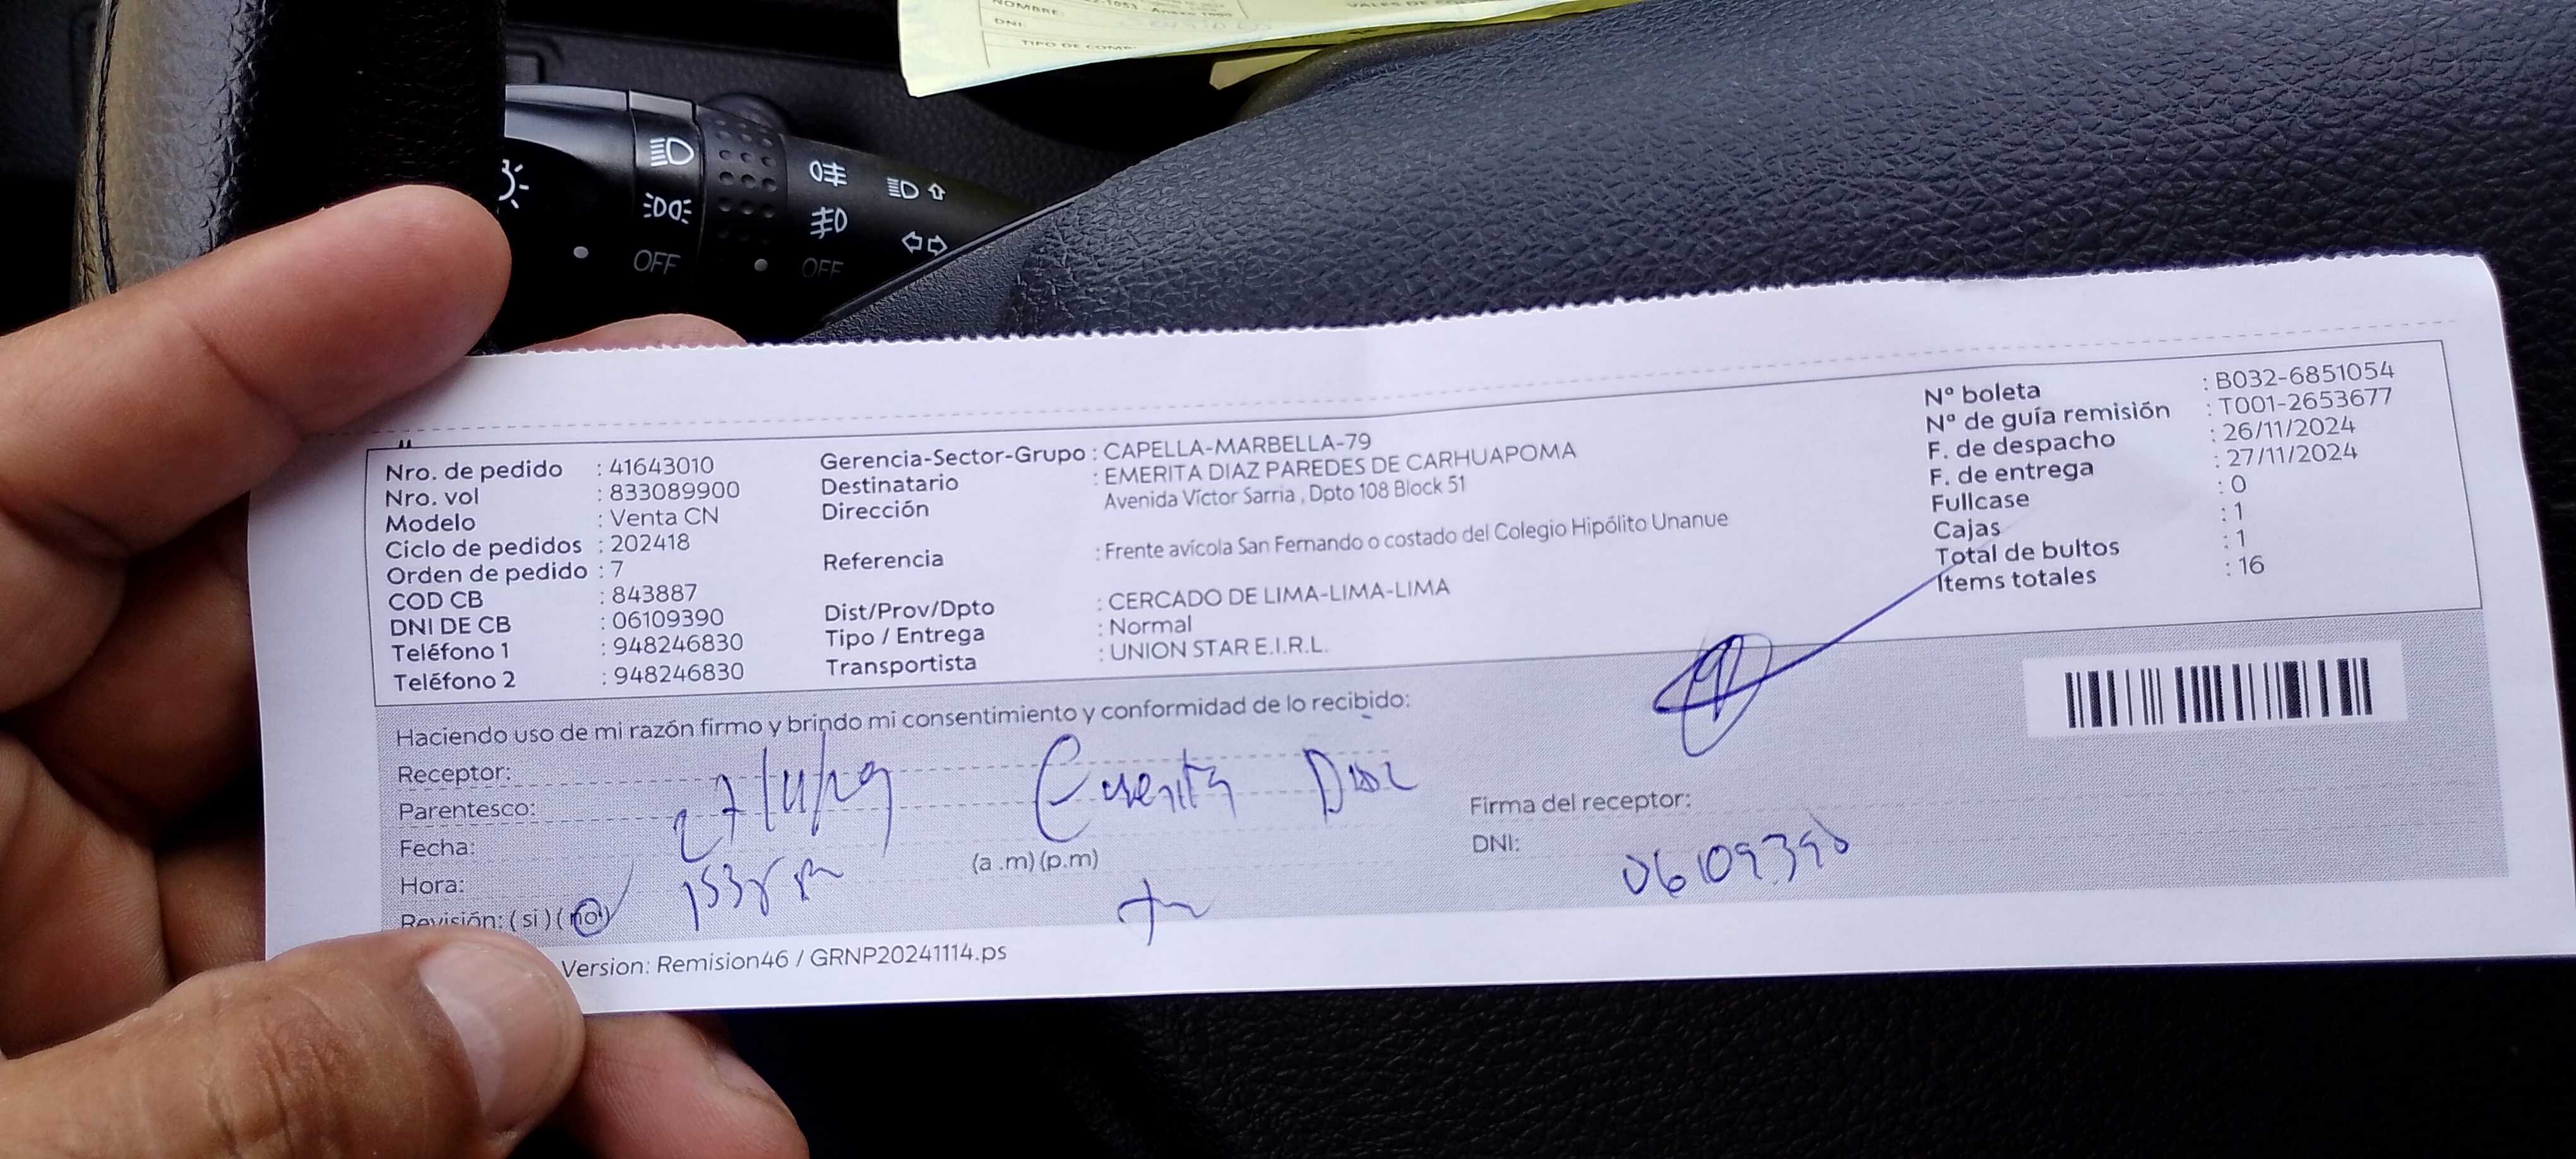 NOMBRE:
DNI:
TIPO DE COMP
VALES DE
OFF
OFF
Nro. de pedido : 41643010
Nro. vol : 833089900
Modelo : Venta CN
Ciclo de pedidos : 202418
Orden de pedido : 7
COD CB : 843887
DNI DE CB : 06109390
Teléfono 1 : 948246830
Teléfono 2 : 948246830
Gerencia-Sector-Grupo : CAPELLA-MARBELLA-79
Destinatario : EMERITA DIAZ PAREDES DE CARHUAPOMA
Dirección Avenida Víctor Sarria , Dpto 108 Block 51
Referencia : Frente avícola San Fernando o costado del Colegio Hipólito Unanue
Dist/Prov/Dpto : CERCADO DE LIMA-LIMA-LIMA
Tipo / Entrega : Normal
Transportista : UNION STAR E.I.R.L.
Nº boleta : B032-6851054
Nº de guía remisión : T001-2653677
F. de despacho : 26/11/2024
F. de entrega : 27/11/2024
Fullcase : 0
Cajas : 1
Total de bultos : 1
Ítems totales : 16
Haciendo uso de mi razón firmo y brindo mi consentimiento y conformidad de lo recibido:
Receptor:
Parentesco:
Emerita Diaz
Fecha: 27/11/
Hora: (a .m) (p.m)
Revisión: ( si ) ( no )
Firma del receptor:
DNI: 06109390
Version: Remision46 / GRNP20241114.ps